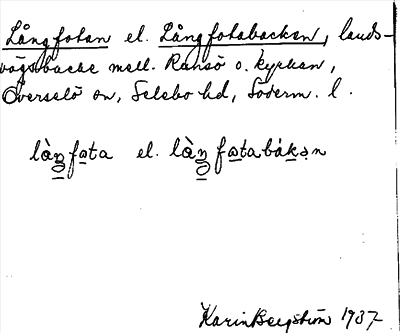 Långfotan el. Långfotabacken, lands-
vägsbacke mell. Ransö o. kyrkan,
Överselö sn, Selebo hd, Söderm. l.
làŋfɷta el. làŋfɷtabákən
Karin Bergström 1937